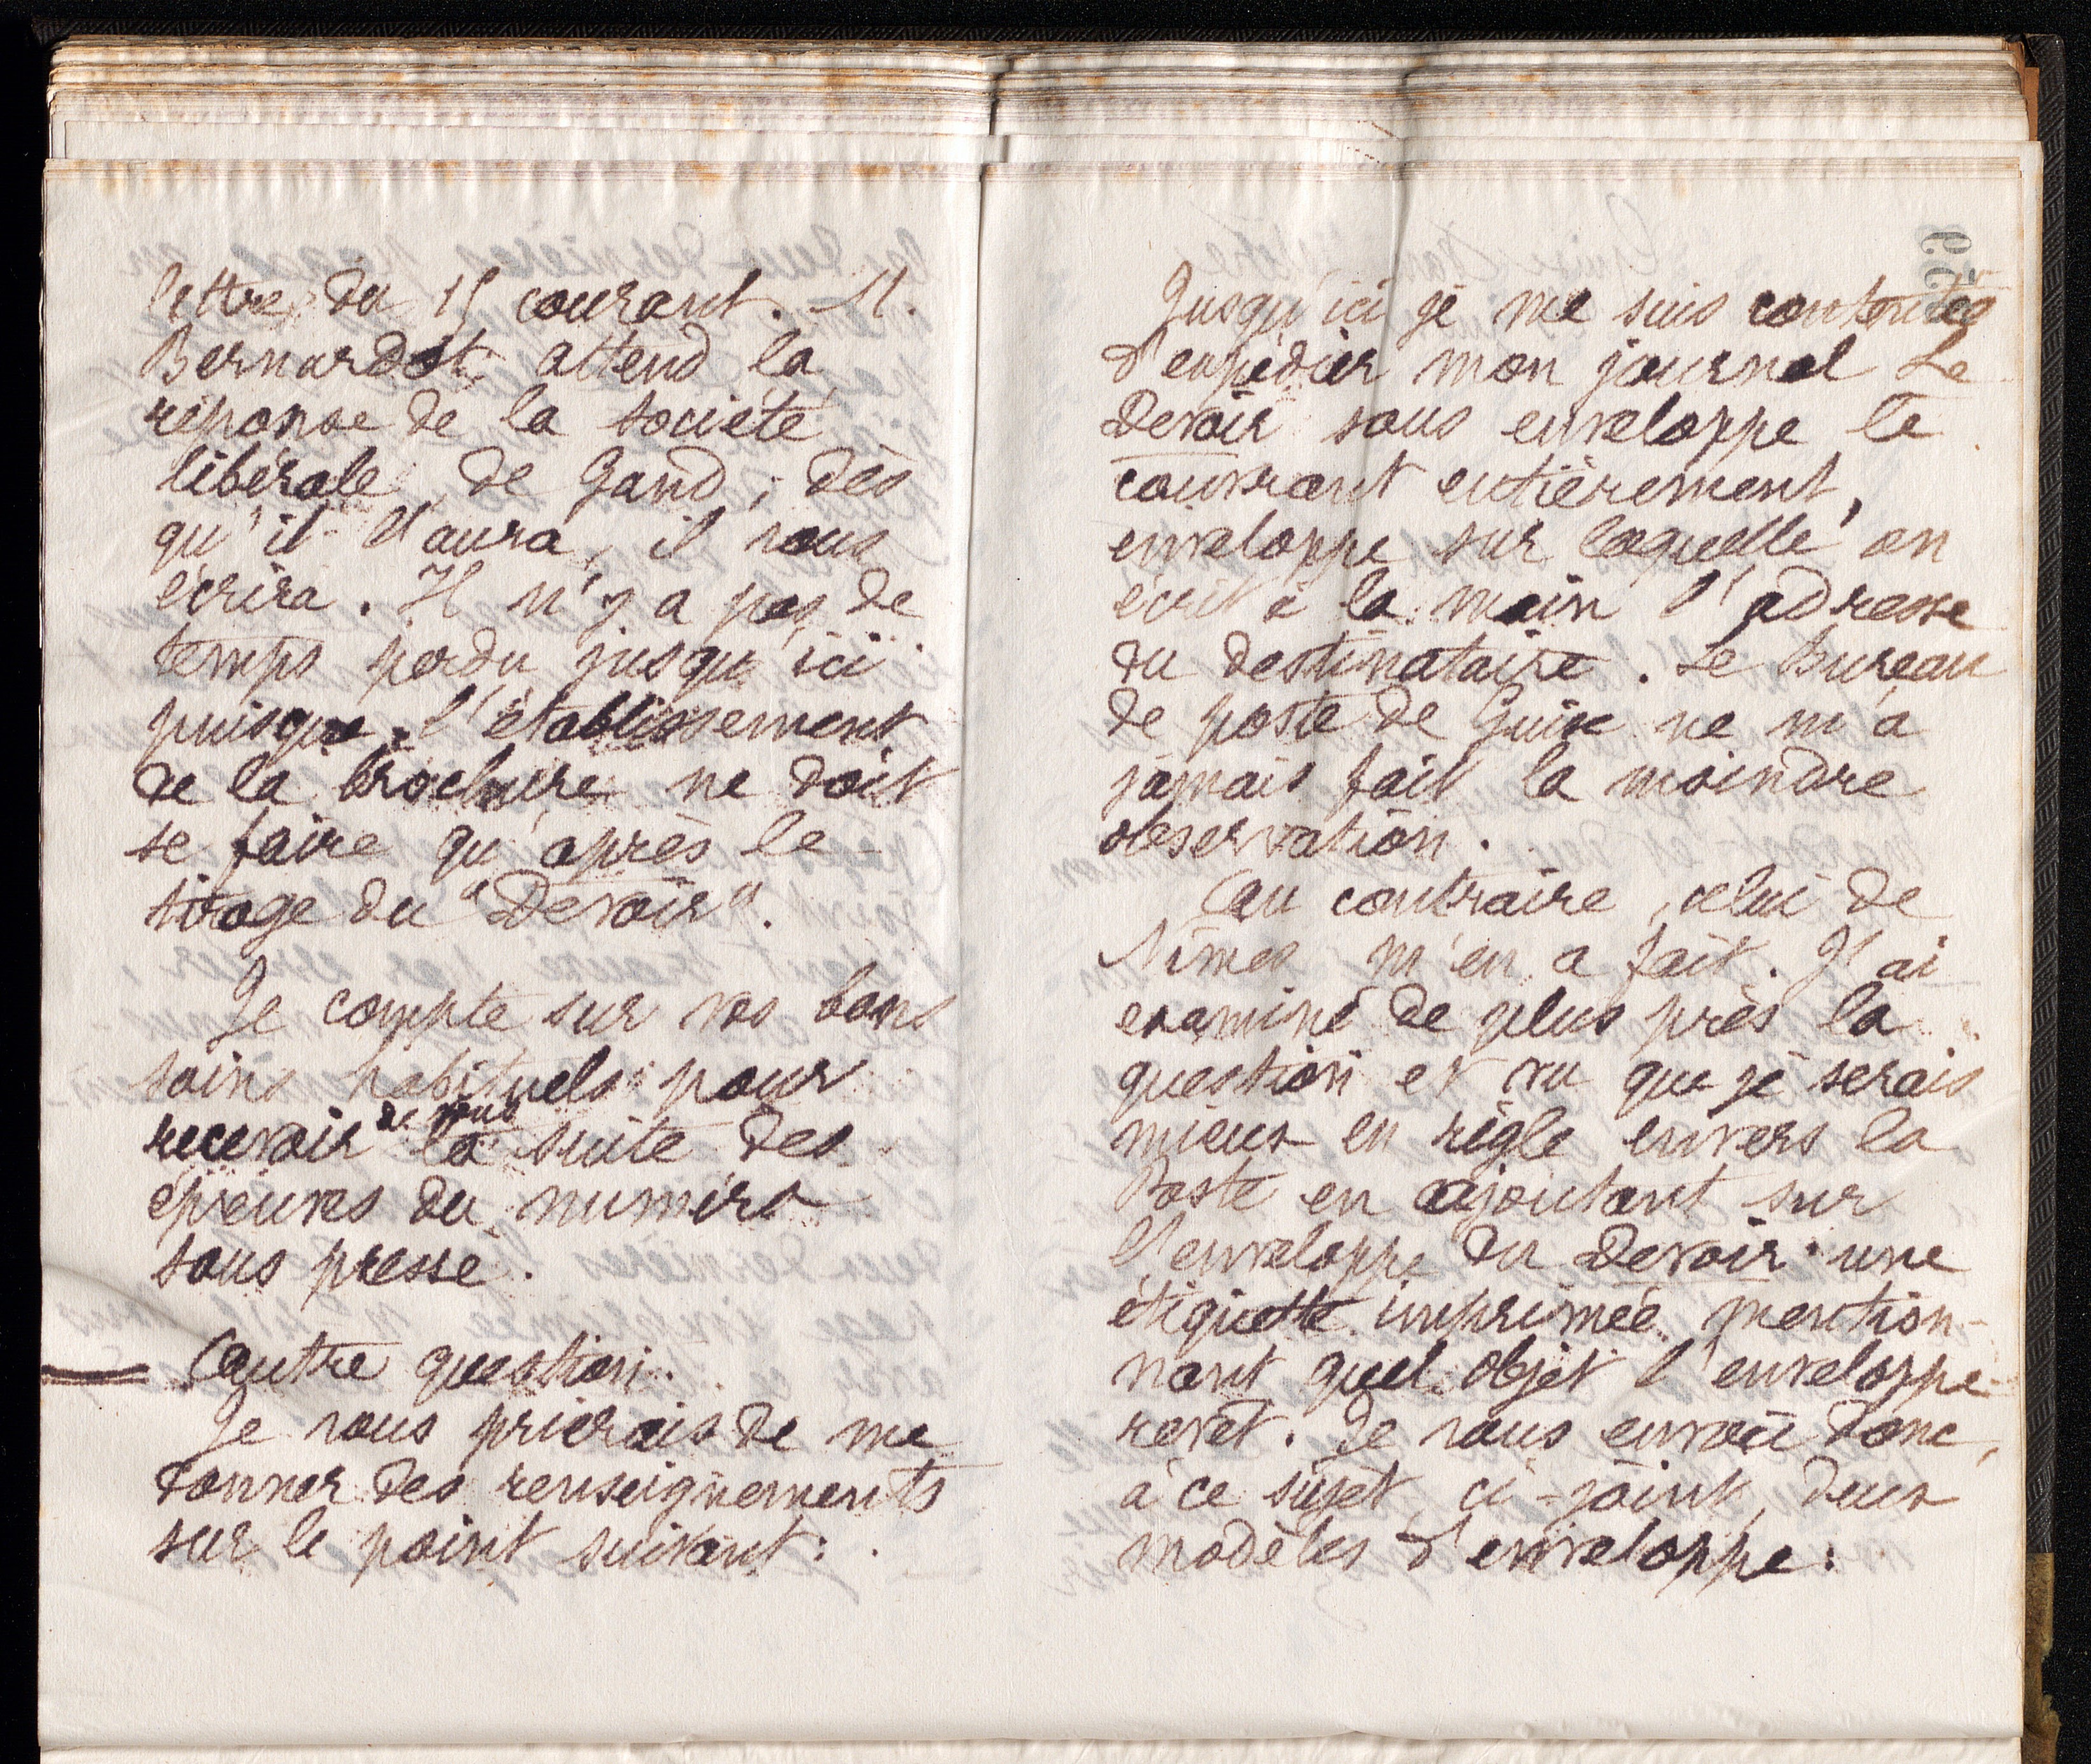 lettre du 15 courant. M.
Bernardot attend la
réponse de la société
libérale de Gand ; dès
qu'il l'aura, il vous
écrira. Il n'y a pas de
temps perdu jusqu'ici
puisque l'établissement
de la brochure ne doit
se faire qu'après le
tirage du "Devoir".
Je compte sur vos bons
soins habituels pour
recevoir de vous la suite des
épreuves du numéro
sous presse.
Autre question.
Je vous prierais de me
donner des renseignements
sur le point suivant :
Jusqu'ici je me suis contentée
d'expédier mon journal Le
Devoir sous enveloppe le
couvrant entièrement,
enveloppe sur laquelle on
écrit à la main l'adresse
du destinataire. Le Bureau
de poste de Guise ne m'a
jamais fait la moindre
observation.
Au contraire, celui de
Nîmes m'en a fait. J'ai
examiné de plus près la
question et vu que je serais
mieux en règle envers la
Poste en ajoutant sur
l'enveloppe du Devoir une
étiquette imprimée mention-
nant quel objet l'enveloppe
revêt. Je vous envoie donc,
à ce sujet, ci-joint, deux
modèles d'enveloppe :